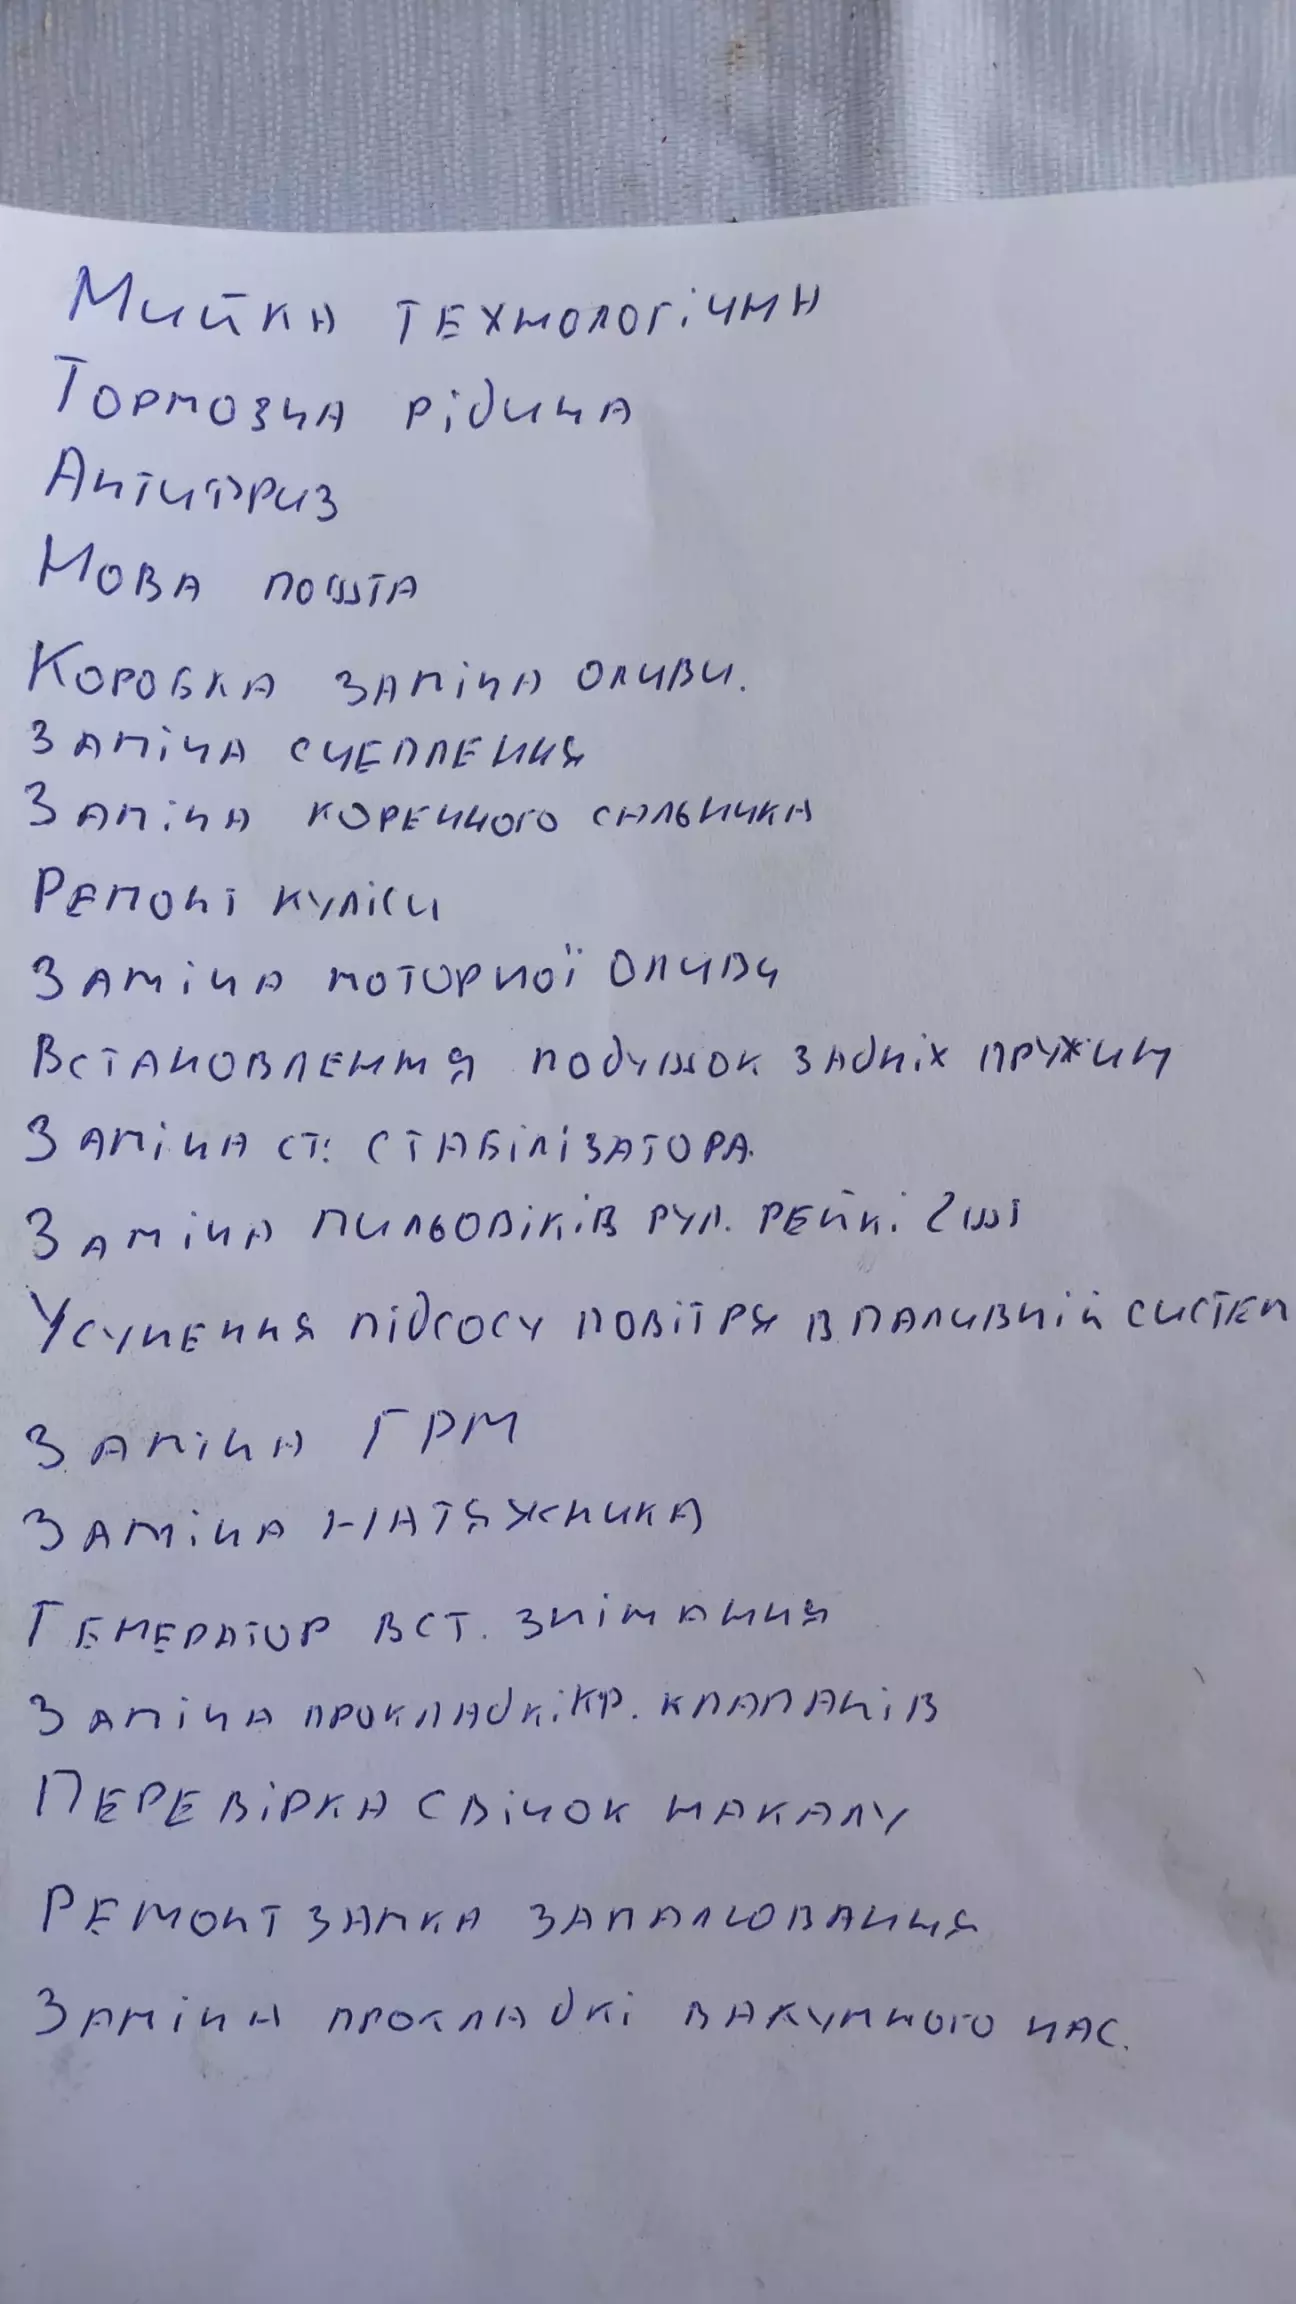 Мийка технологічна
Тормозна рідина
Антифриз
Нова пошта
Коробка заміна оливи.
Заміна сцеплення
Заміна коренного сальника
Ремонт куліси
Заміна моторної оливи
Встановлення подушок задніх пружин
Заміна ст. стабілізатора.
Заміна пильовіків рул. рейкі 2шт
Усунення підсосу повітря в паливній систем
Заміна ГРМ
Заміна натяжника
Генератор вст. знімання
Заміна прокладкі кр. клапанів
Перевірка свічок накалу
Ремонт замка запалювання
Заміна прокладкі вакумного нас.